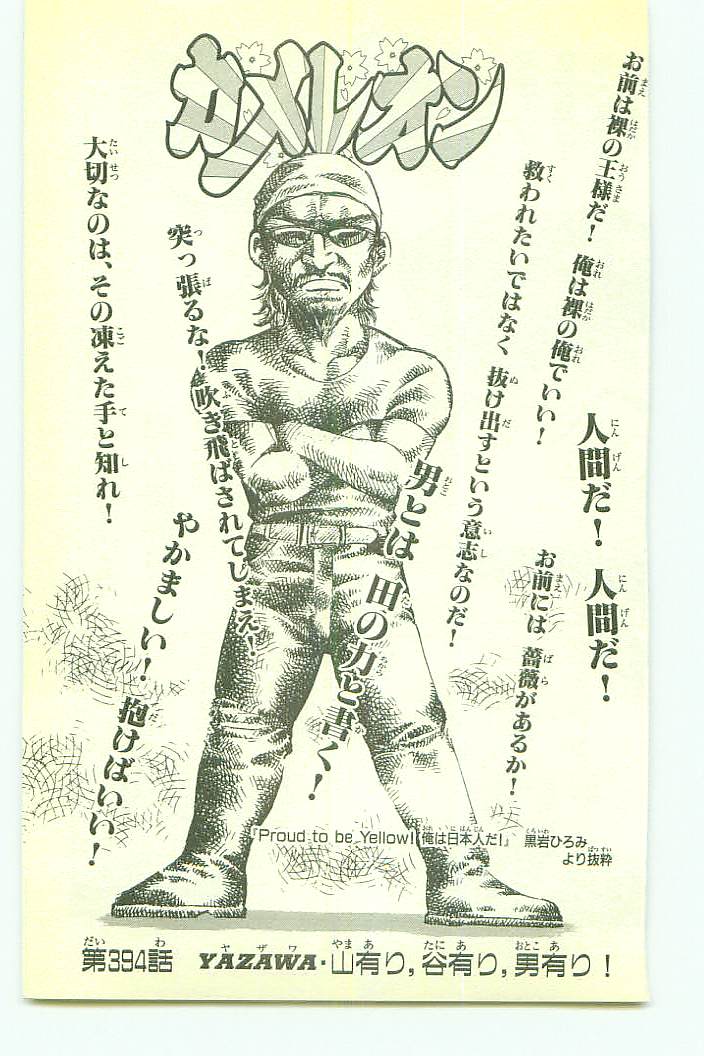 カメレオン
お前は裸の王様だ！ 俺は裸の俺でいい！
人間だ！ 人間だ！
救われたいではなく 抜け出すという意志なのだ！
お前には 薔薇があるか！
男とは 田の力と書く！
突っ張るな！吹き飛ばされてしまえ！
やかましい！ 抱けばいい！
大切なのは、その凍えた手と知れ！
『Proud to be Yellow！俺は日本人だ！』 黒岩ひろみ
より抜粋
第394話 YAZAWA・山有り，谷有り，男有り！